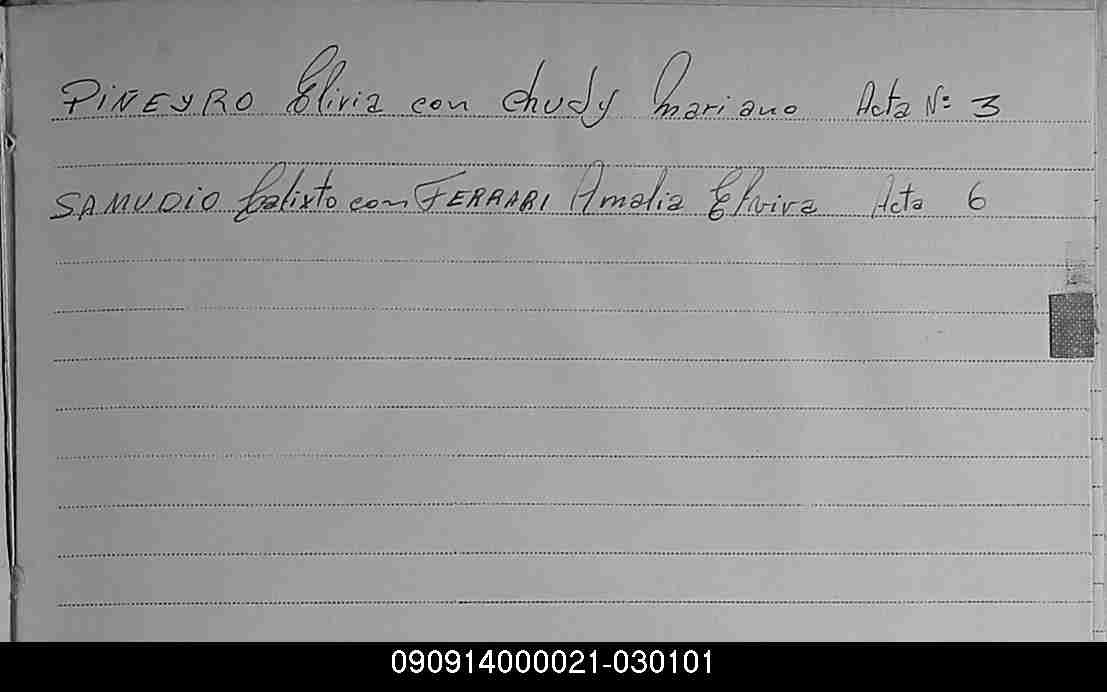 PIÑEYRO Elivia con Chudy Mariano Acta Nº 3
SAMUDIO Calixto con FERRARI Amalia Elvira Acta 6
090914000021-030101